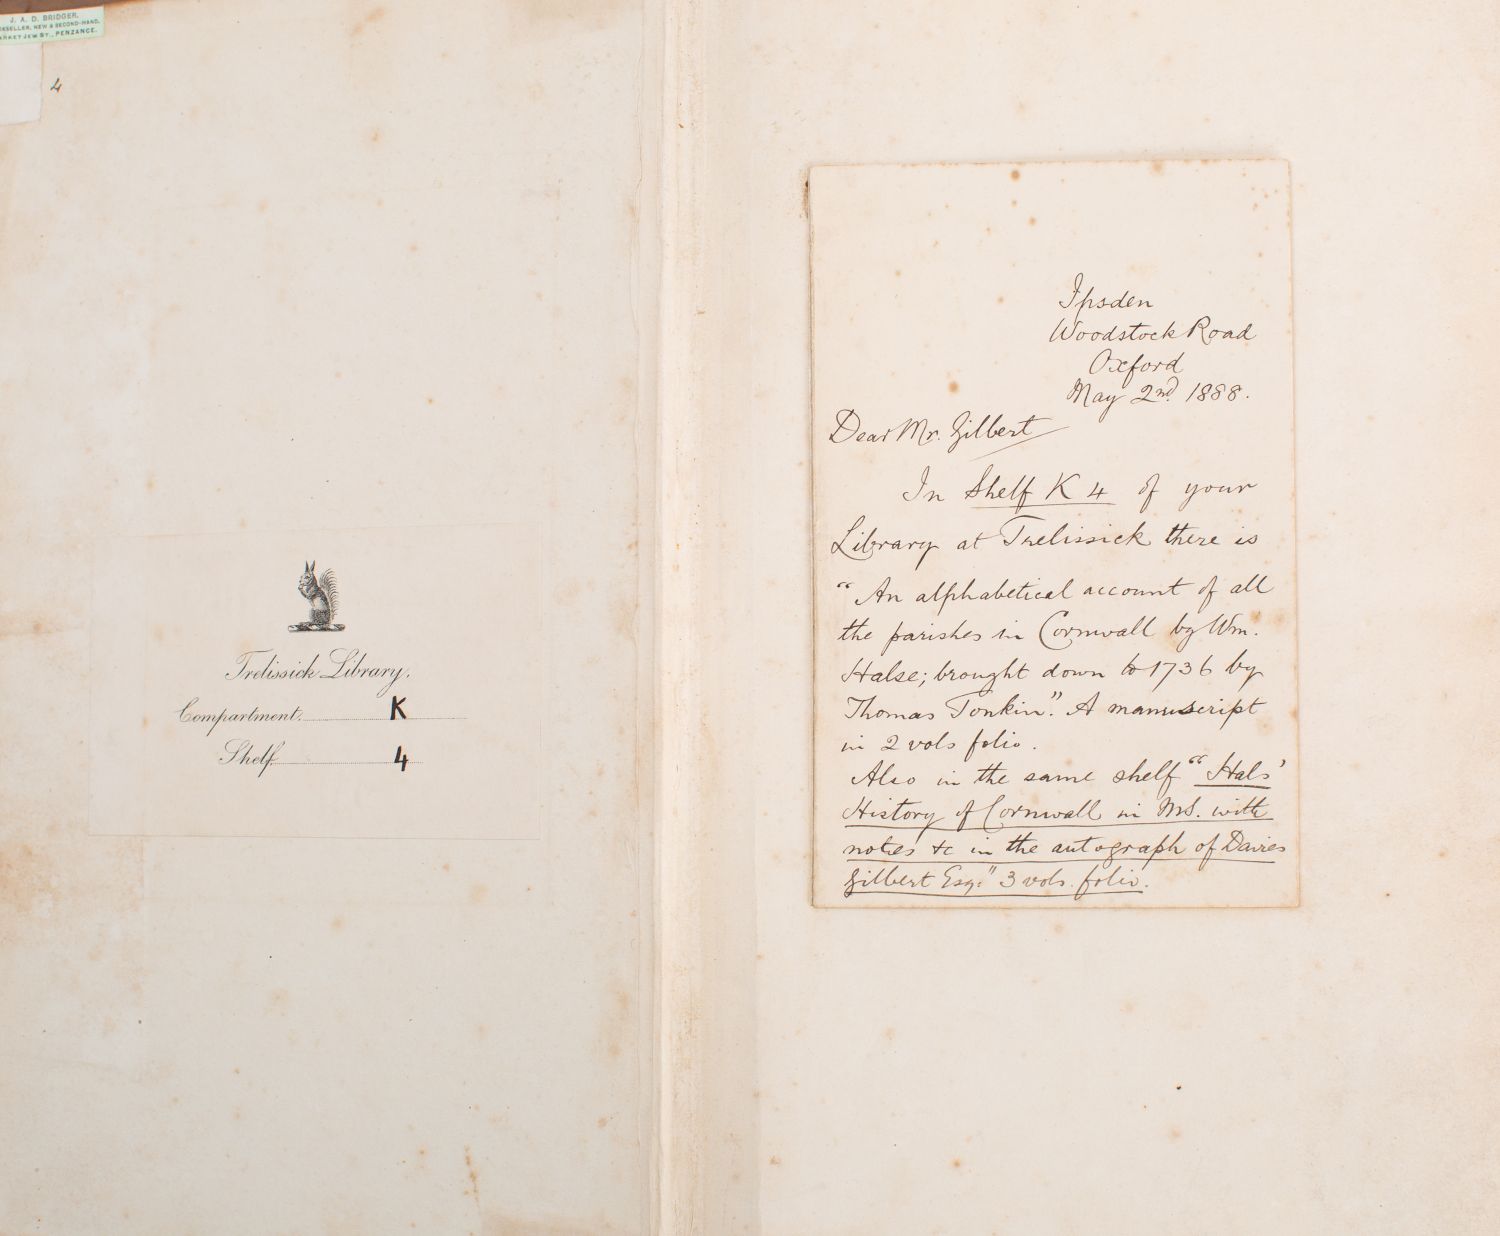 J. A. D. BRIDGER,
KSELLER, NEW & SECOND-HAND,
ARKET JEW ST., PENZANCE.
4
Trelissick Library.
Compartment. K
Shelf. 4
Ipsden
Woodstock Road
Oxford
May 2nd. 1888.
Dear Mr. Gilbert
In Shelf K 4 of your
Library at Trelissick there is
"An alphabetical account of all
the parishes in Cornwall by Wm.
Halse; brought down to 1736 by
Thomas Tonkin". A manuscript
in 2 vols folio.
Also in the same shelf "Hals'
History of Cornwall in MS. with
notes &c in the autograph of Davies
Gilbert Esq." 3 vols. folio.